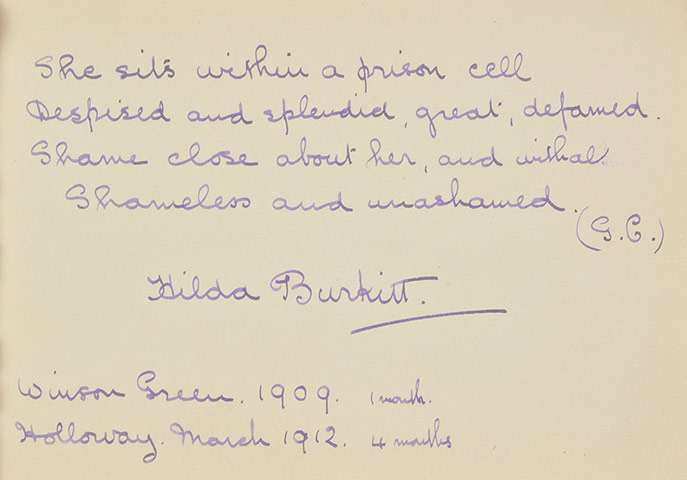 She sits within a prison cell
Despised and splendid, great, defamed.
Shame close about her, and withal
Shameless and unashamed.
(G.C.)
Hilda Burkitt.
Winson Green. 1909. 1 month.
Holloway. March 1912. 4 months